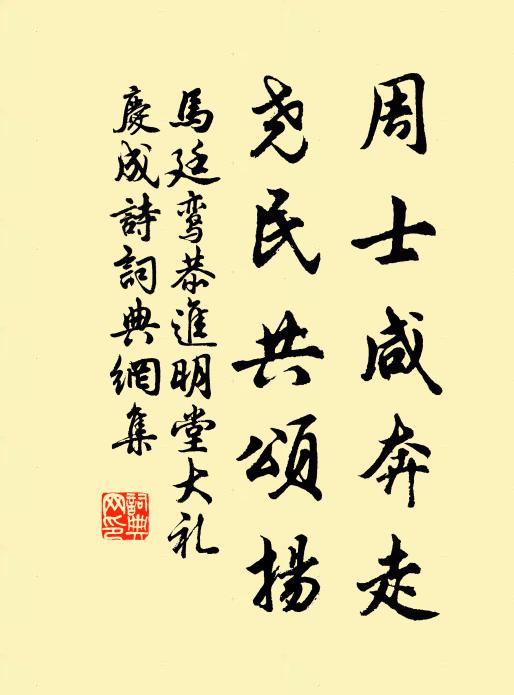 周士咸奔走
尧民共頌揚
馬廷鸾恭進明堂大礼
慶成詩詞典網集
詞典网印